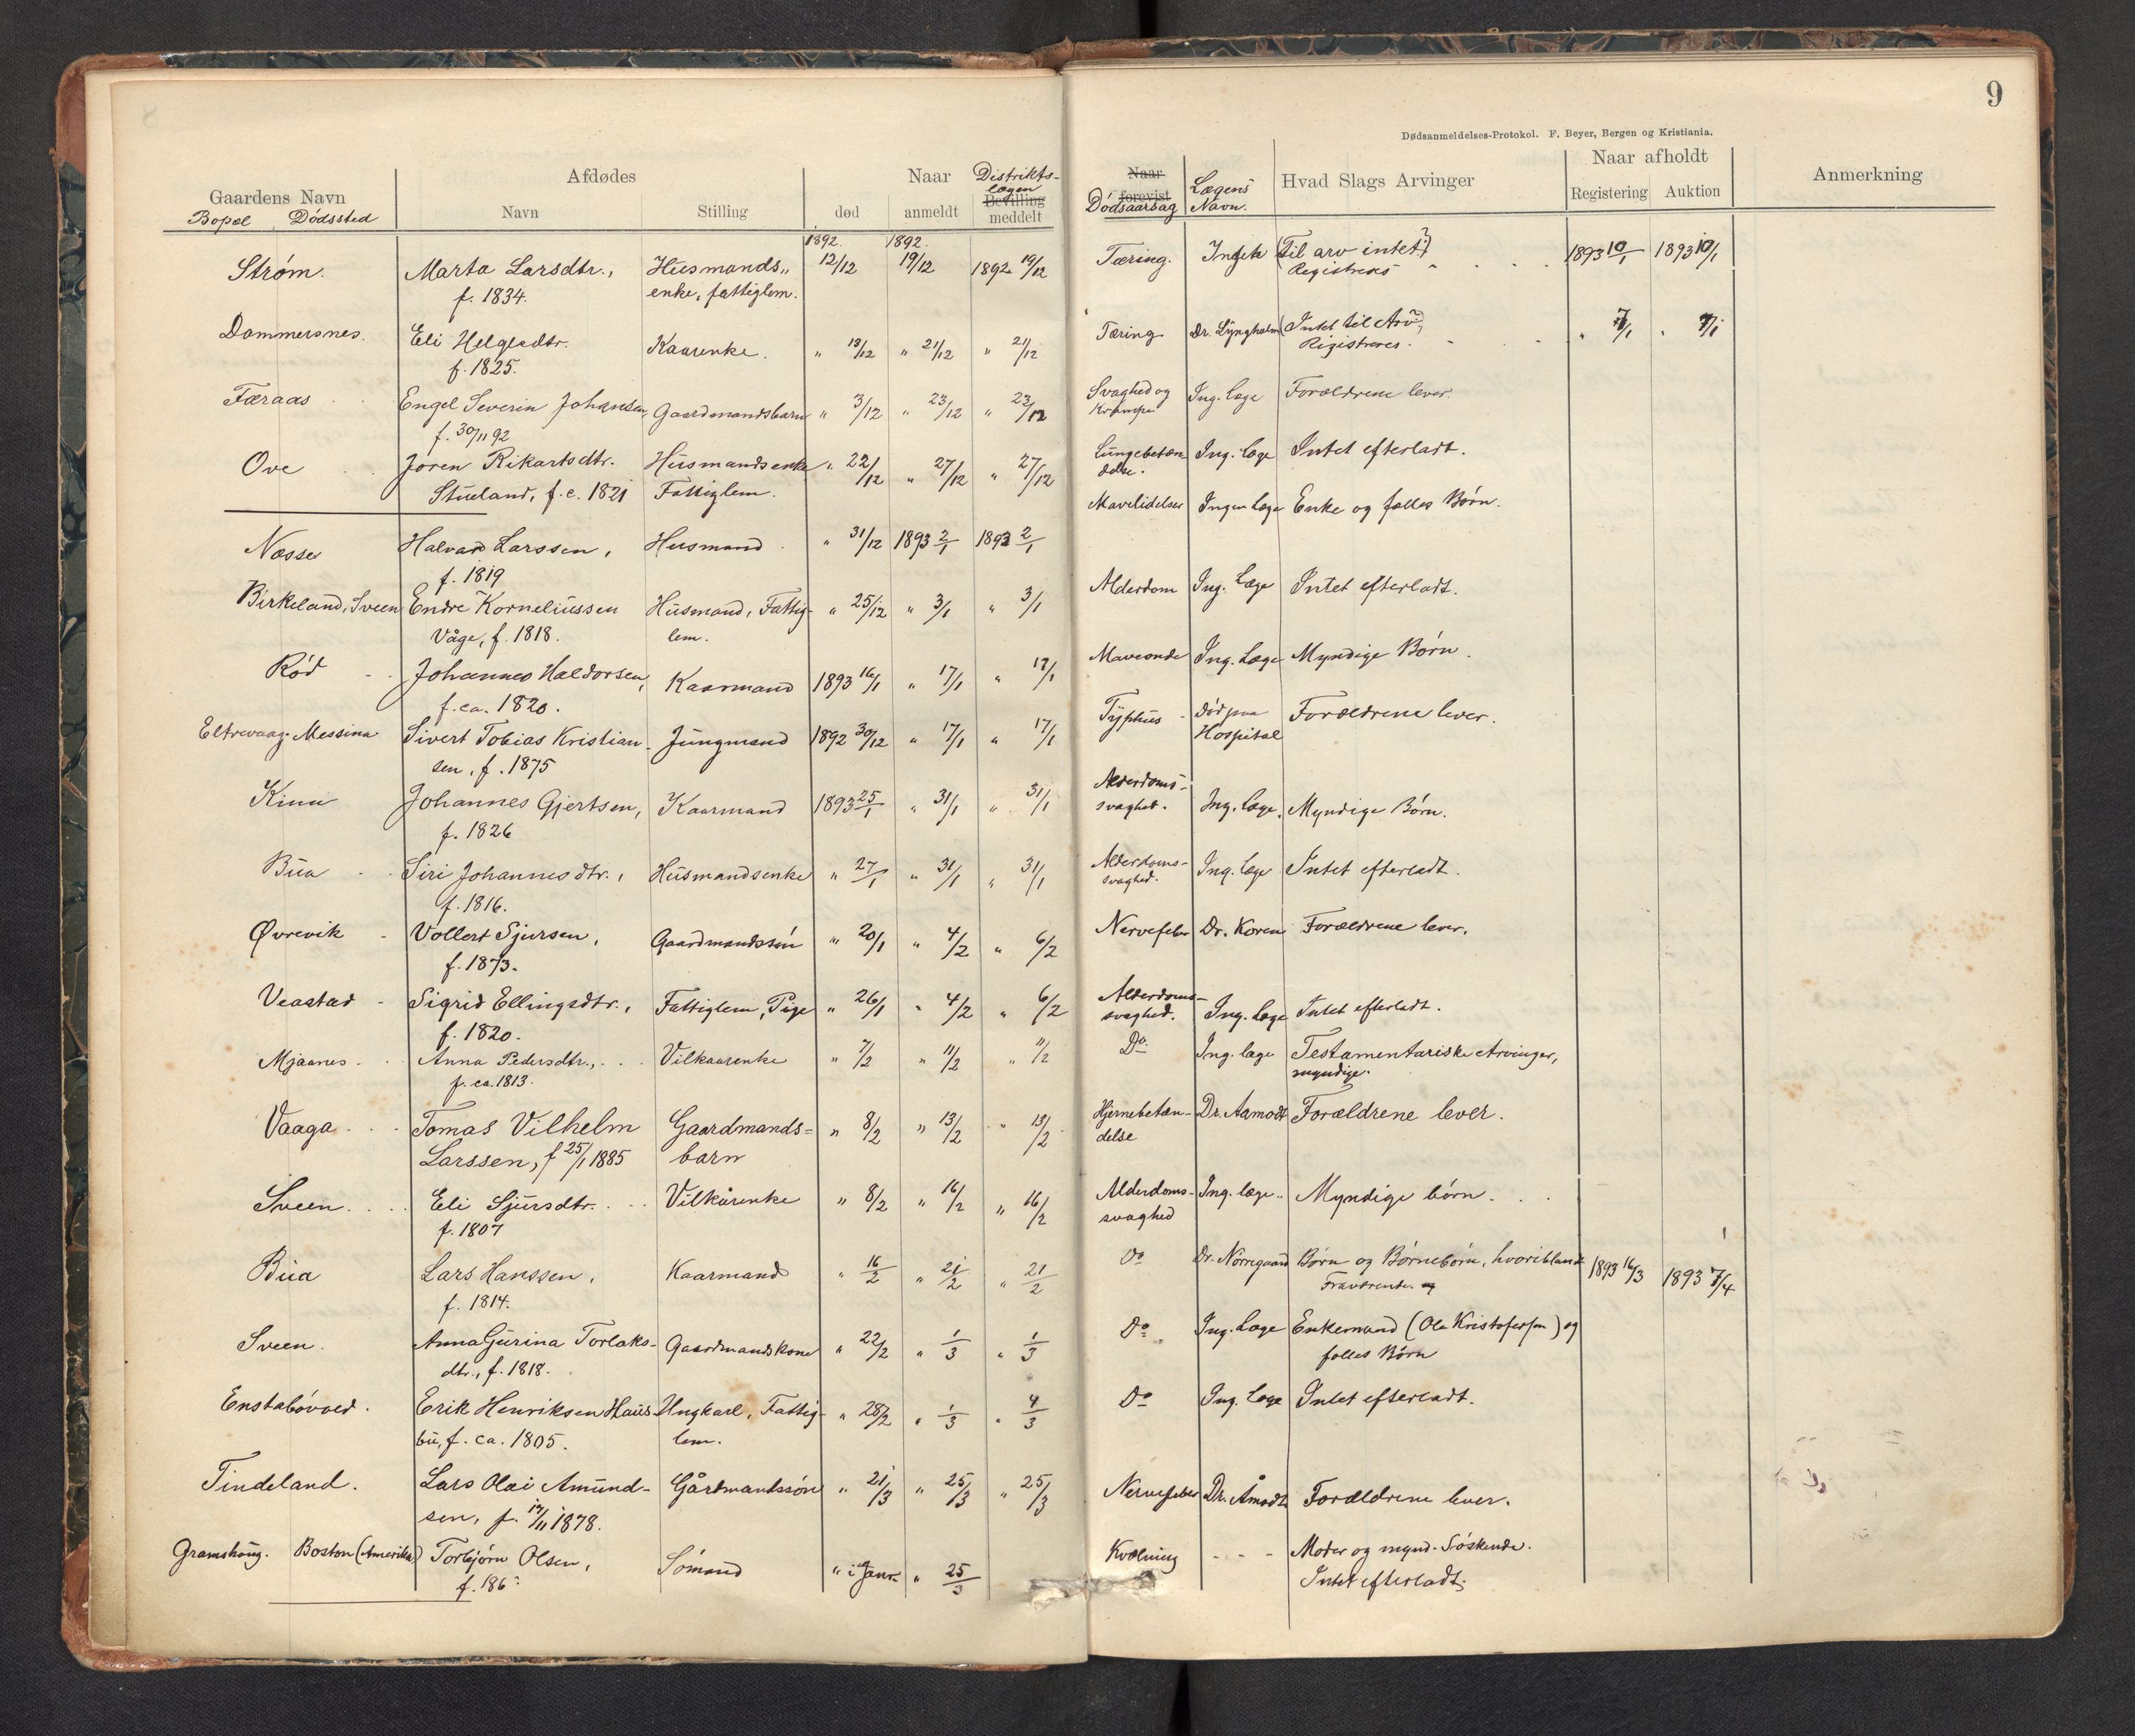 9
Dødsanmeldelses-Protokol. F. Beyer, Bergen og Kristiania.
Gaardens Navn
Bopæl Dödssted
Afdødes
Navn
Stilling
Naar
død
anmeldt
Distrikts-
lægen
Bevilling
meddelt
Naar
forevist
Dödsaarsag
Lægens
Navn.
Hvad Slags Arvinger
Naar afholdt
Registering Auktion
Anmerkning
1892. 1892.
Strøm. Marta Larsdtr., Husmands„ 12/12 19/12 1892 19/12 Tæring. (Til arv intet?) 1893 10/1 1893 10/1
f. 1834. enke, fattiglem. Registreres
Dommersnes. Eli Helgesdtr. Kaarenke. " 13/12 " 21/12 " 21/12 Tæring Dr. Lyngholm (Intet til Arv?) " 7/1 " 7/1
f. 1825. Registreres.
Færaas Engel Severin Johansen, Gaardmandsbarn " 3/12 " 23/12 " 23/12 Svaghed og Ing. læge Forældrene lever.
f. 30/11 92 Krampe
Ove Joren Rikartsdtr. Husmandsenke " 22/12 " 27/12 " 27/12 Lungebetæn Ing. læge Intet efterladt.
Stueland, f. c. 1821 Fattiglem. delse.
Næsse Halvard Larssen, Husmand " 31/12 1893 2/1 1893 2/1 Mavelidelser Ingen Læge Enke og fælles Börn.
f. 1819
Birkeland, Sveen Endre Korneliussen Husmand, Fattig- " 25/12 " 3/1 " 3/1 Alderdom Ing. Læge Intet efterladt.
Våge, f. 1818. lem.
Röd Johannes Haldorsen, Kaarmand 1893 16/1 " 17/1 " 17/1 Maveonde Ing. Læge Myndige Börn.
f. ca. 1820.
Eltrevaag. Messina Sivert Tobias Kristian- Jungmand 1892 30/12 " 17/1 " 17/1 Typhus - Död paa Forældrene lever.
sen, f. 1875 Hospital
Kinn Johannes Gjertsen, Kaarmand 1893 25/1 " 31/1 " 31/1 Alderdoms- Ing. læge. Myndige Börn.
f. 1826 svaghed.
Bua Siri Johannesdtr., Husmandsenke " 27/1 " 31/1 " 31/1 Alderdoms- Ing. læge Intet efterladt.
f. 1816. svaghed.
Øvrevik Vollert Sjursen, Gaardmandssön " 20/1 " 4/2 " 6/2 Nervefeber Dr. Koren Forældrene lever.
f. 1873.
Veastad Sigrid Ellingsdtr., Fattiglem, Pige " 26/1 " 4/2 " 6/2 Alderdoms- Ing. Læge Intet efterladt.
f. 1820. svaghed.
Mjaanes Anna Pedersdtr., Vilkaarenke " 7/2 " 11/2 " 11/2 Do. Ing. læge Testamentariske Arvinger,
f. ca. 1813. myndige.
Vaaga Tomas Vilhelm Gaardmands= " 8/2 " 13/2 " 13/2 Hjernebetæn- Dr. Aamodt Forældrene lever.
Larssen, f 25/1 1885 barn delse
Sveen Eli Sjursdtr. Vilkårenke " 8/2 " 16/2 " 16/2 Alderdoms- Ing. læge Myndige börn.
f. 1807 svaghed
Bua Lars Hanssen, Kaarmand " 16/2 " 21/2 " 21/2 Do Dr. Nörregaard Börn og Börnebörn, hvoriblandt 1893 16/3 1893 7/4
f. 1814. Fraværende.
Sveen. Anna Gurina Torlaks- Gaardmandskone " 22/2 " 1/3 " 1/3 Do Ing. Læge Enkemand (Ole Kristofersen) og
dtr., f. 1818. fælles Börn
Enstabövoed. Erik Henriksen Haus- Ungkarl, Fattig- " 28/2 " 1/3 " 4/3 Do Ing. Læge Intet efterladt.
bu, f. ca. 1805. lem.
Tindeland. Lars Olai Amund- Gårdmandssön " 21/3 " 25/3 " 25/3 Nervefeber Dr. Åmodt Forældrene lever.
sen, f. 1878.
Gramshaug. Boston (Amerika) Torbjörn Olsen, Sömand " i Janr. " 25/3 Kvælning - - - Moder og mynd. Söskende.
f. 186 Intet efterladt.